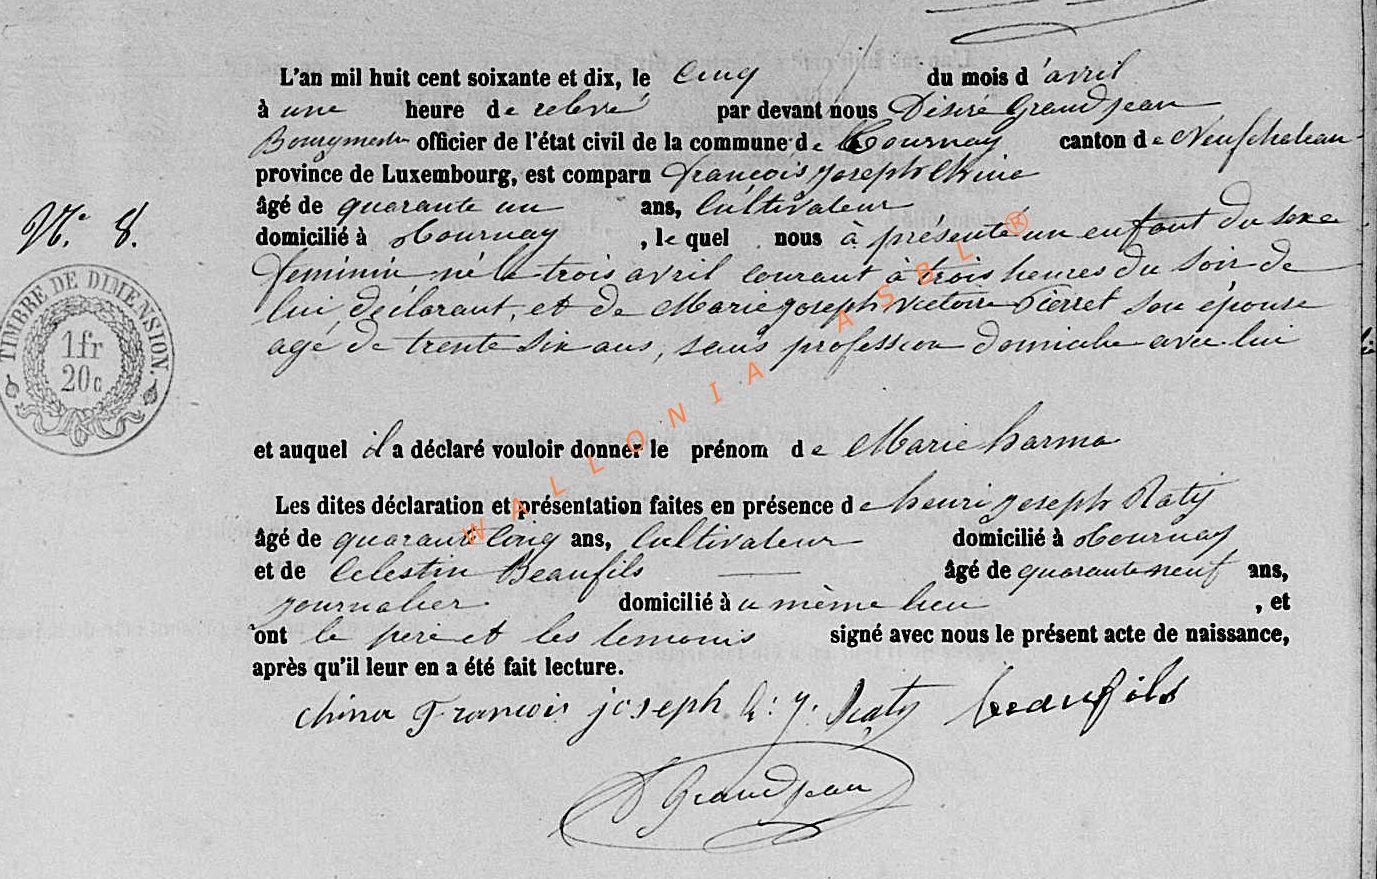 L'an mil huit cent soixante et dix, le cinq du mois d'avril
à une heure de relevé par devant nous Désiré Grandjean
Bourgmestre officier de l'état civil de la commune de Tournay canton de Neufchateau
province de Luxembourg, est comparu françois joseph Chine
âgé de quarante un ans, Cultivateur
N.° 8. domicilié à Tournay, le quel nous à présenté un enfant du sexe
feminin né le trois avril courant à trois heures du soir de
lui déclarant, et de Marie joseph victoire Pierret son épouse
agé de trente six ans, sans profession domicilie avec lui
TIMBRE DE DIMENSION.
1fr
20c
et auquel il a déclaré vouloir donner le prénom de Marie
Les dites déclaration et présentation faites en présence de henri joseph Raty
âgé de quarante cinq ans, Cultivateur domicilié à Tournay
et de Celestin Beaufils âgé de quarante neuf ans,
journalier domicilié au même lieu, et
ont le pere et les temoins signé avec nous le présent acte de naissance,
après qu'il leur en a été fait lecture.
François joseph h: j. Raty beaufils
D Grandjean
WALLONIA ASBL ®